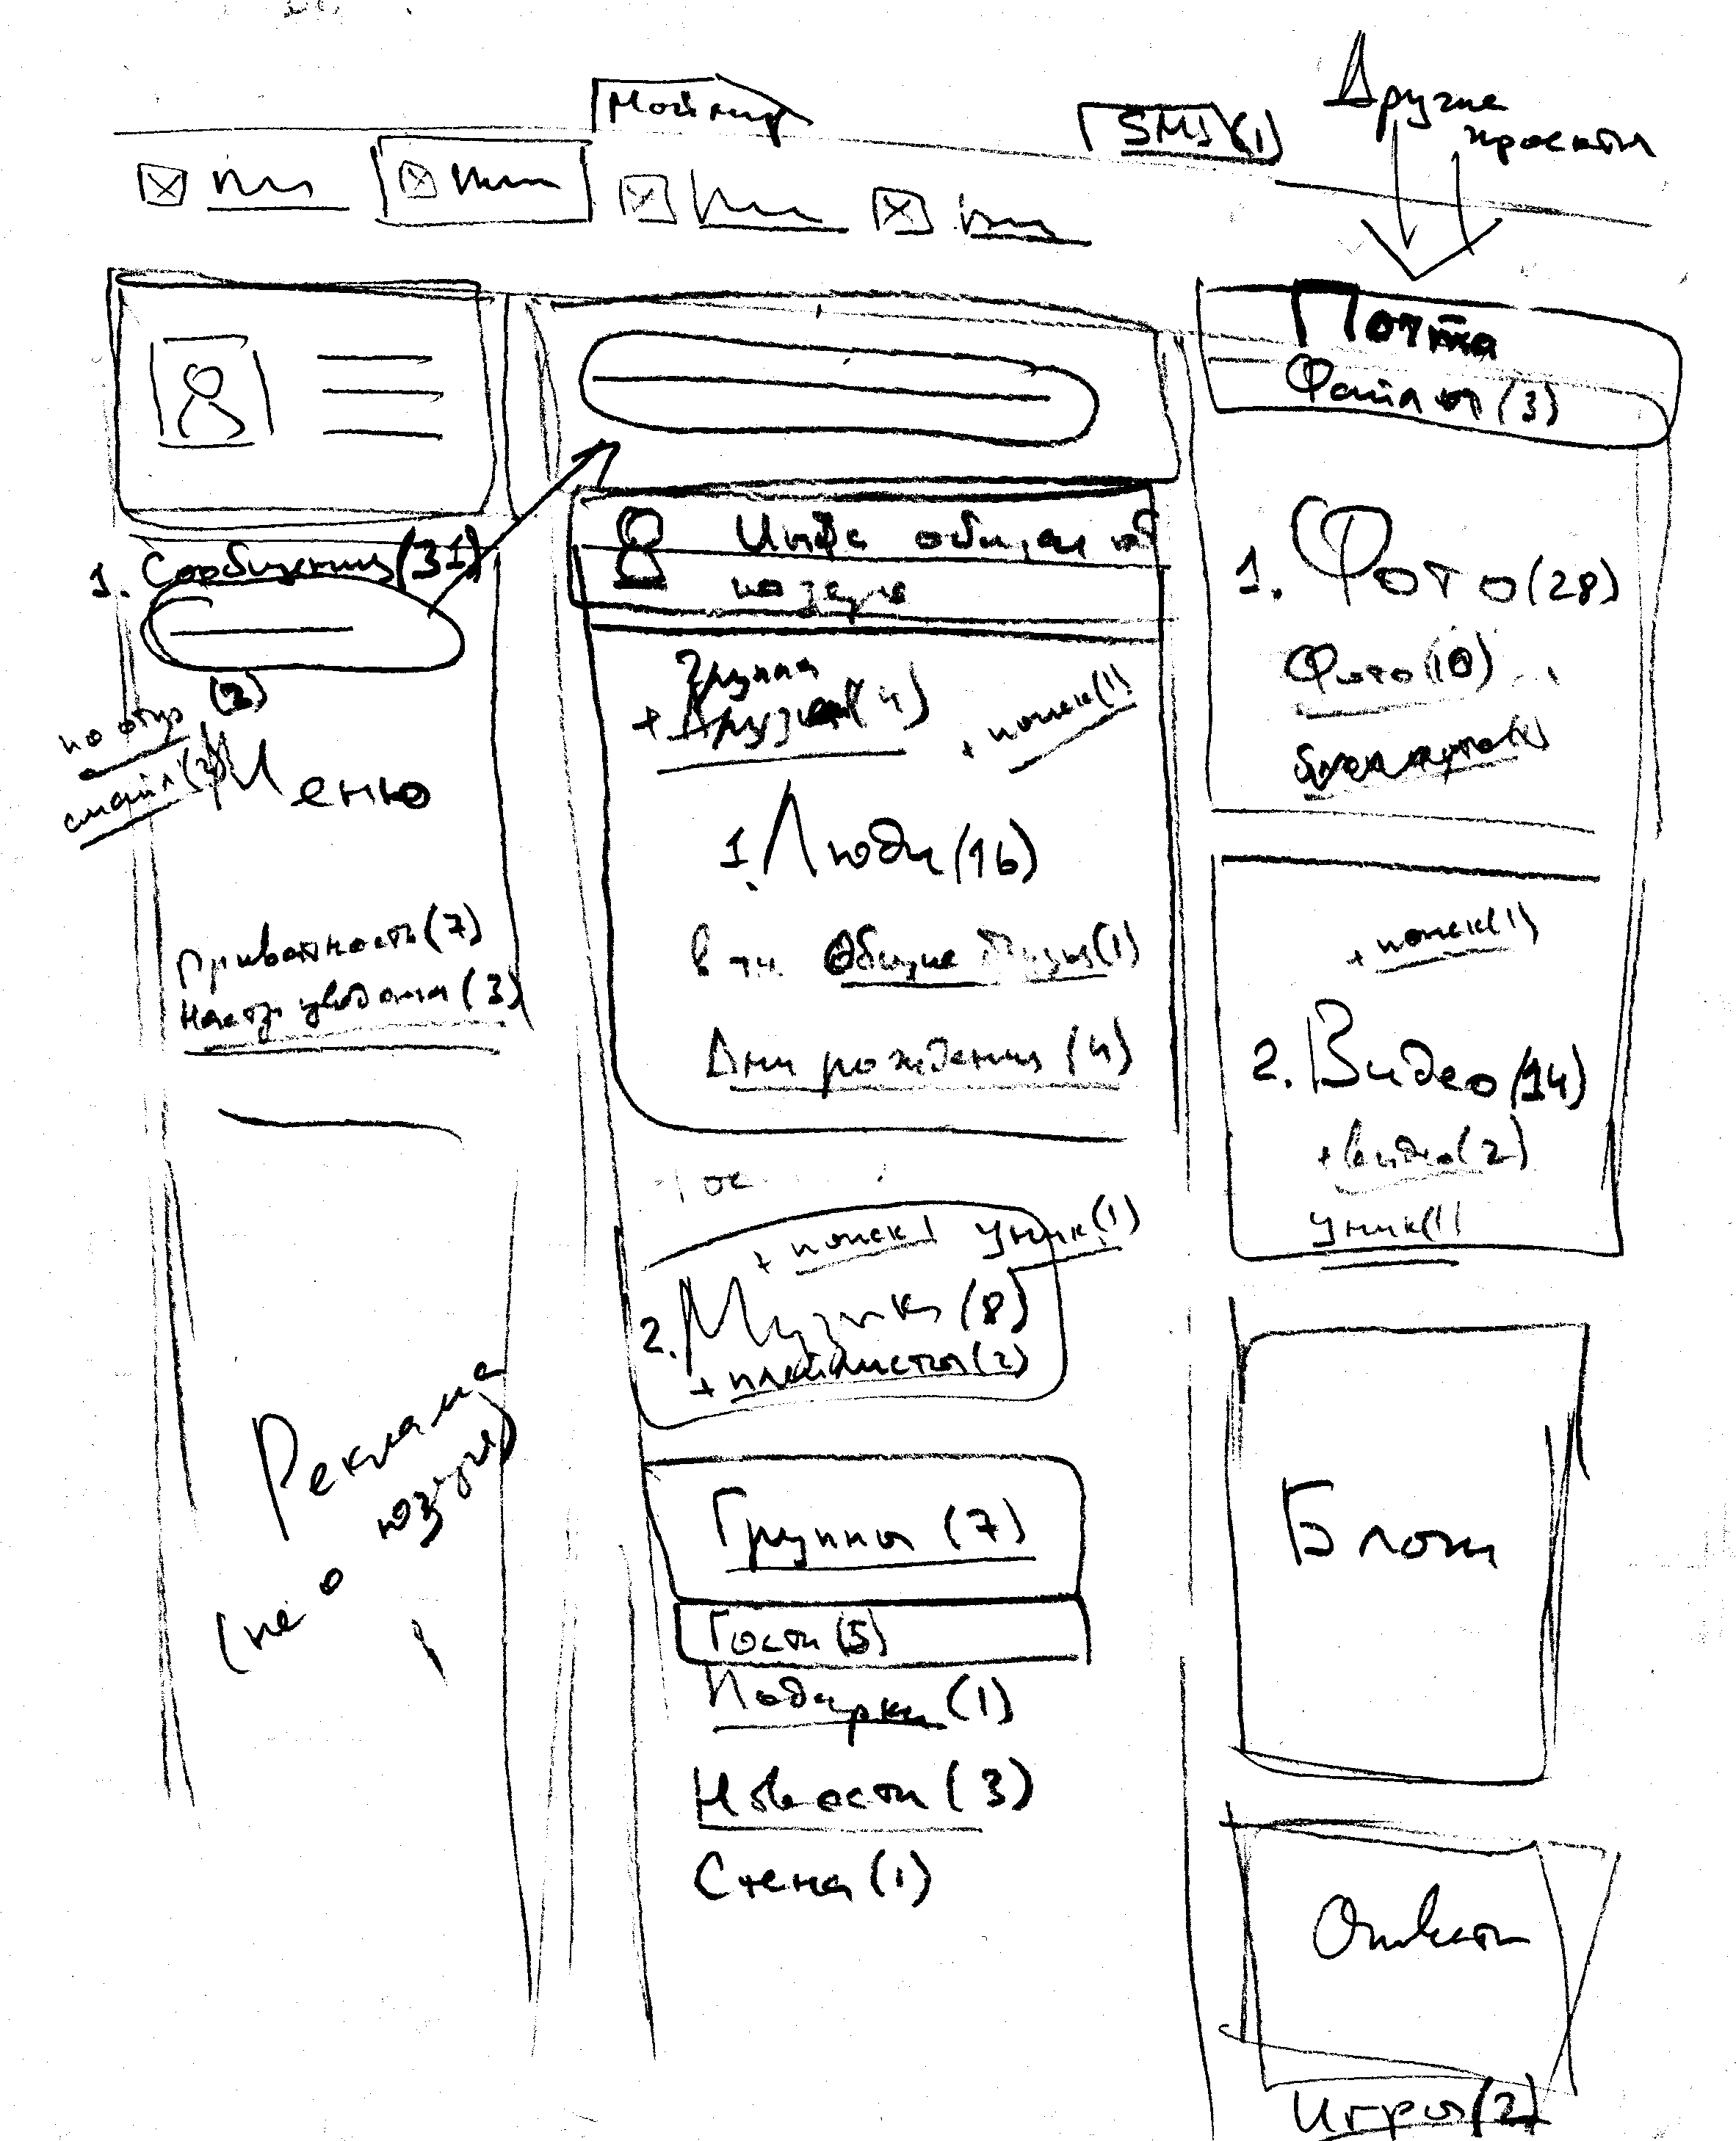 Мой мир
SMS (1)
Другие
проекты
1. Сообщения (31)
(2)
смайл (2)
Меню
Приватность (7)
Настр уведомл (3)
Реклама
(не о юзере)
Инфа общая об
юзере
группа
+ Друзья (4)
+ поиск (1)
1. Люди (16)
в т.ч. Общие друзья (1)
Дни рождения (4)
+ поиск 1 Уник (1)
2. Музыка (8)
+ плейлисты (2)
Группы (7)
Гости (5)
Подарки (1)
Новости (3)
Стена (1)
Почта
Файлы (3)
1. Фото (28)
Фото (10)
+ поиск (1)
2. Видео (14)
+ видео (2)
Уник (1)
Блоги
Ответы
Игры (2)